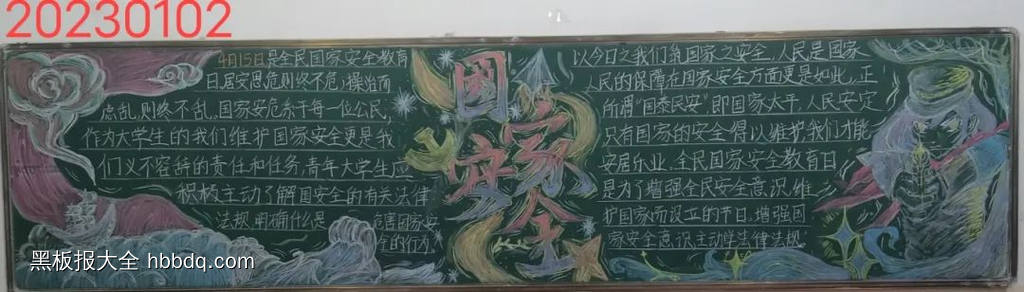 20230102
4月15日是全民国家安全教育
日居安思危则终不危,操治而
虑乱,则终不乱。国家安危系于每一位公民,
作为大学生的我们维护国家安全更是我
们义不容辞的责任和任务,青年大学生应
积极主动了解国安全的有关法律
法规,明确什么是危害国家安
全的行为
國家安全
以今日之我们务国家之安全,人民是国家
人民的保障在国家安全方面更是如此,正
所谓“国泰民安”即国家太平,人民安定
只有国家的安全得以维护我们才能
安居乐业,全民国家安全教育日
是为了增强全民安全意识,维
护国家而设立的节日,增强国
家安全意识主动学法律法规
黑板报大全 hbbdq.com